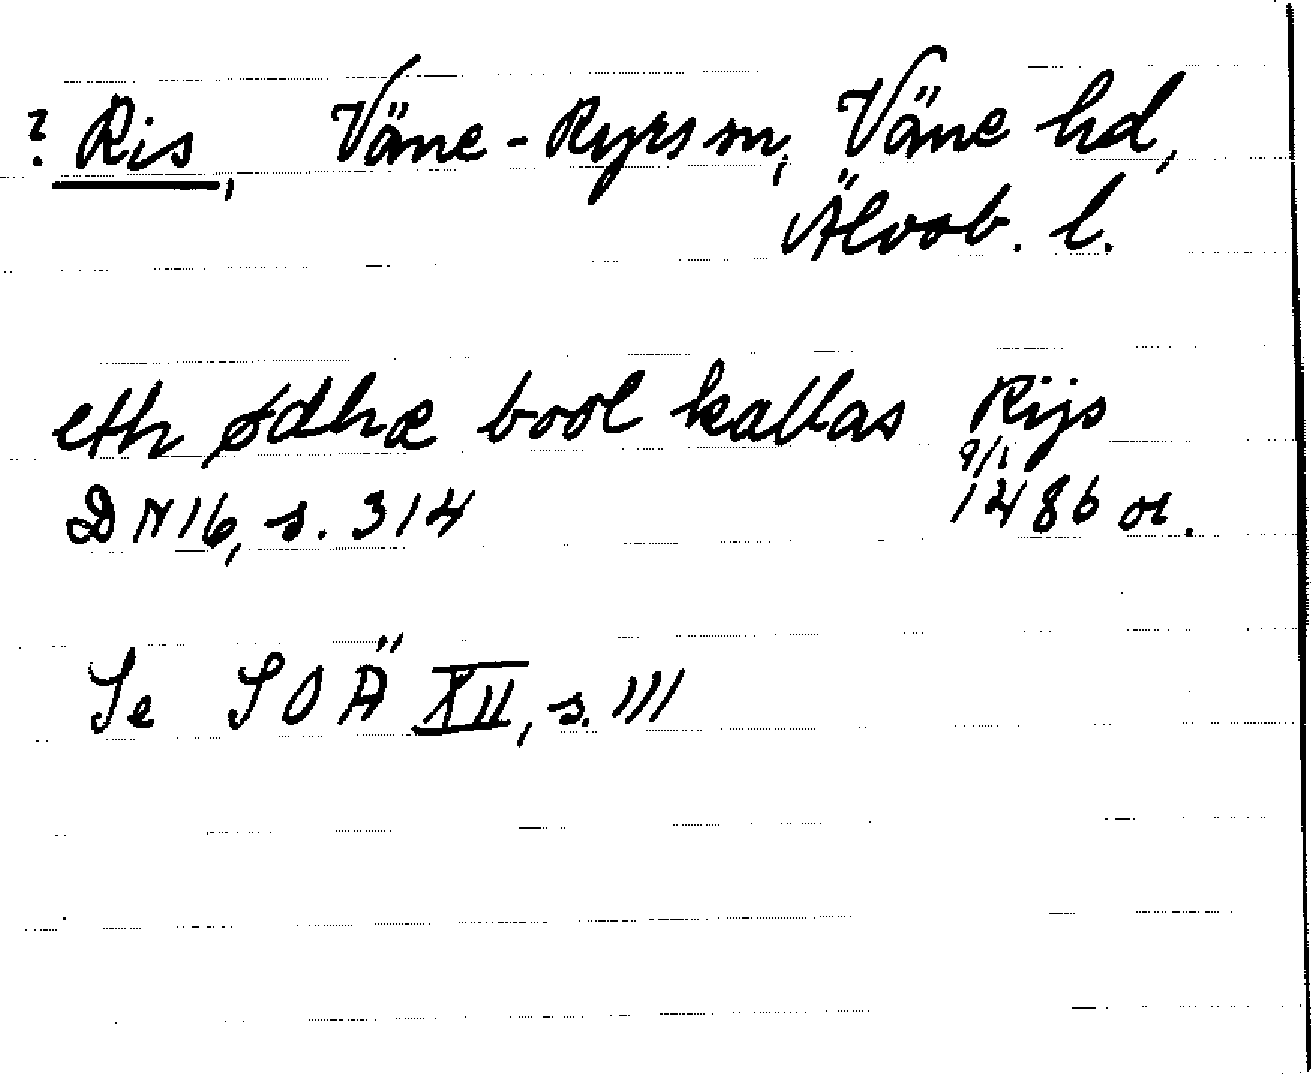 ? Ris, Väne-Ryrs sn, Väne hd,
Älvsb. l.
eth ødhæ bool kallas Rijs
9/1
DN 16, s. 314 1486 or.
Se SOÄ XII, s. 111